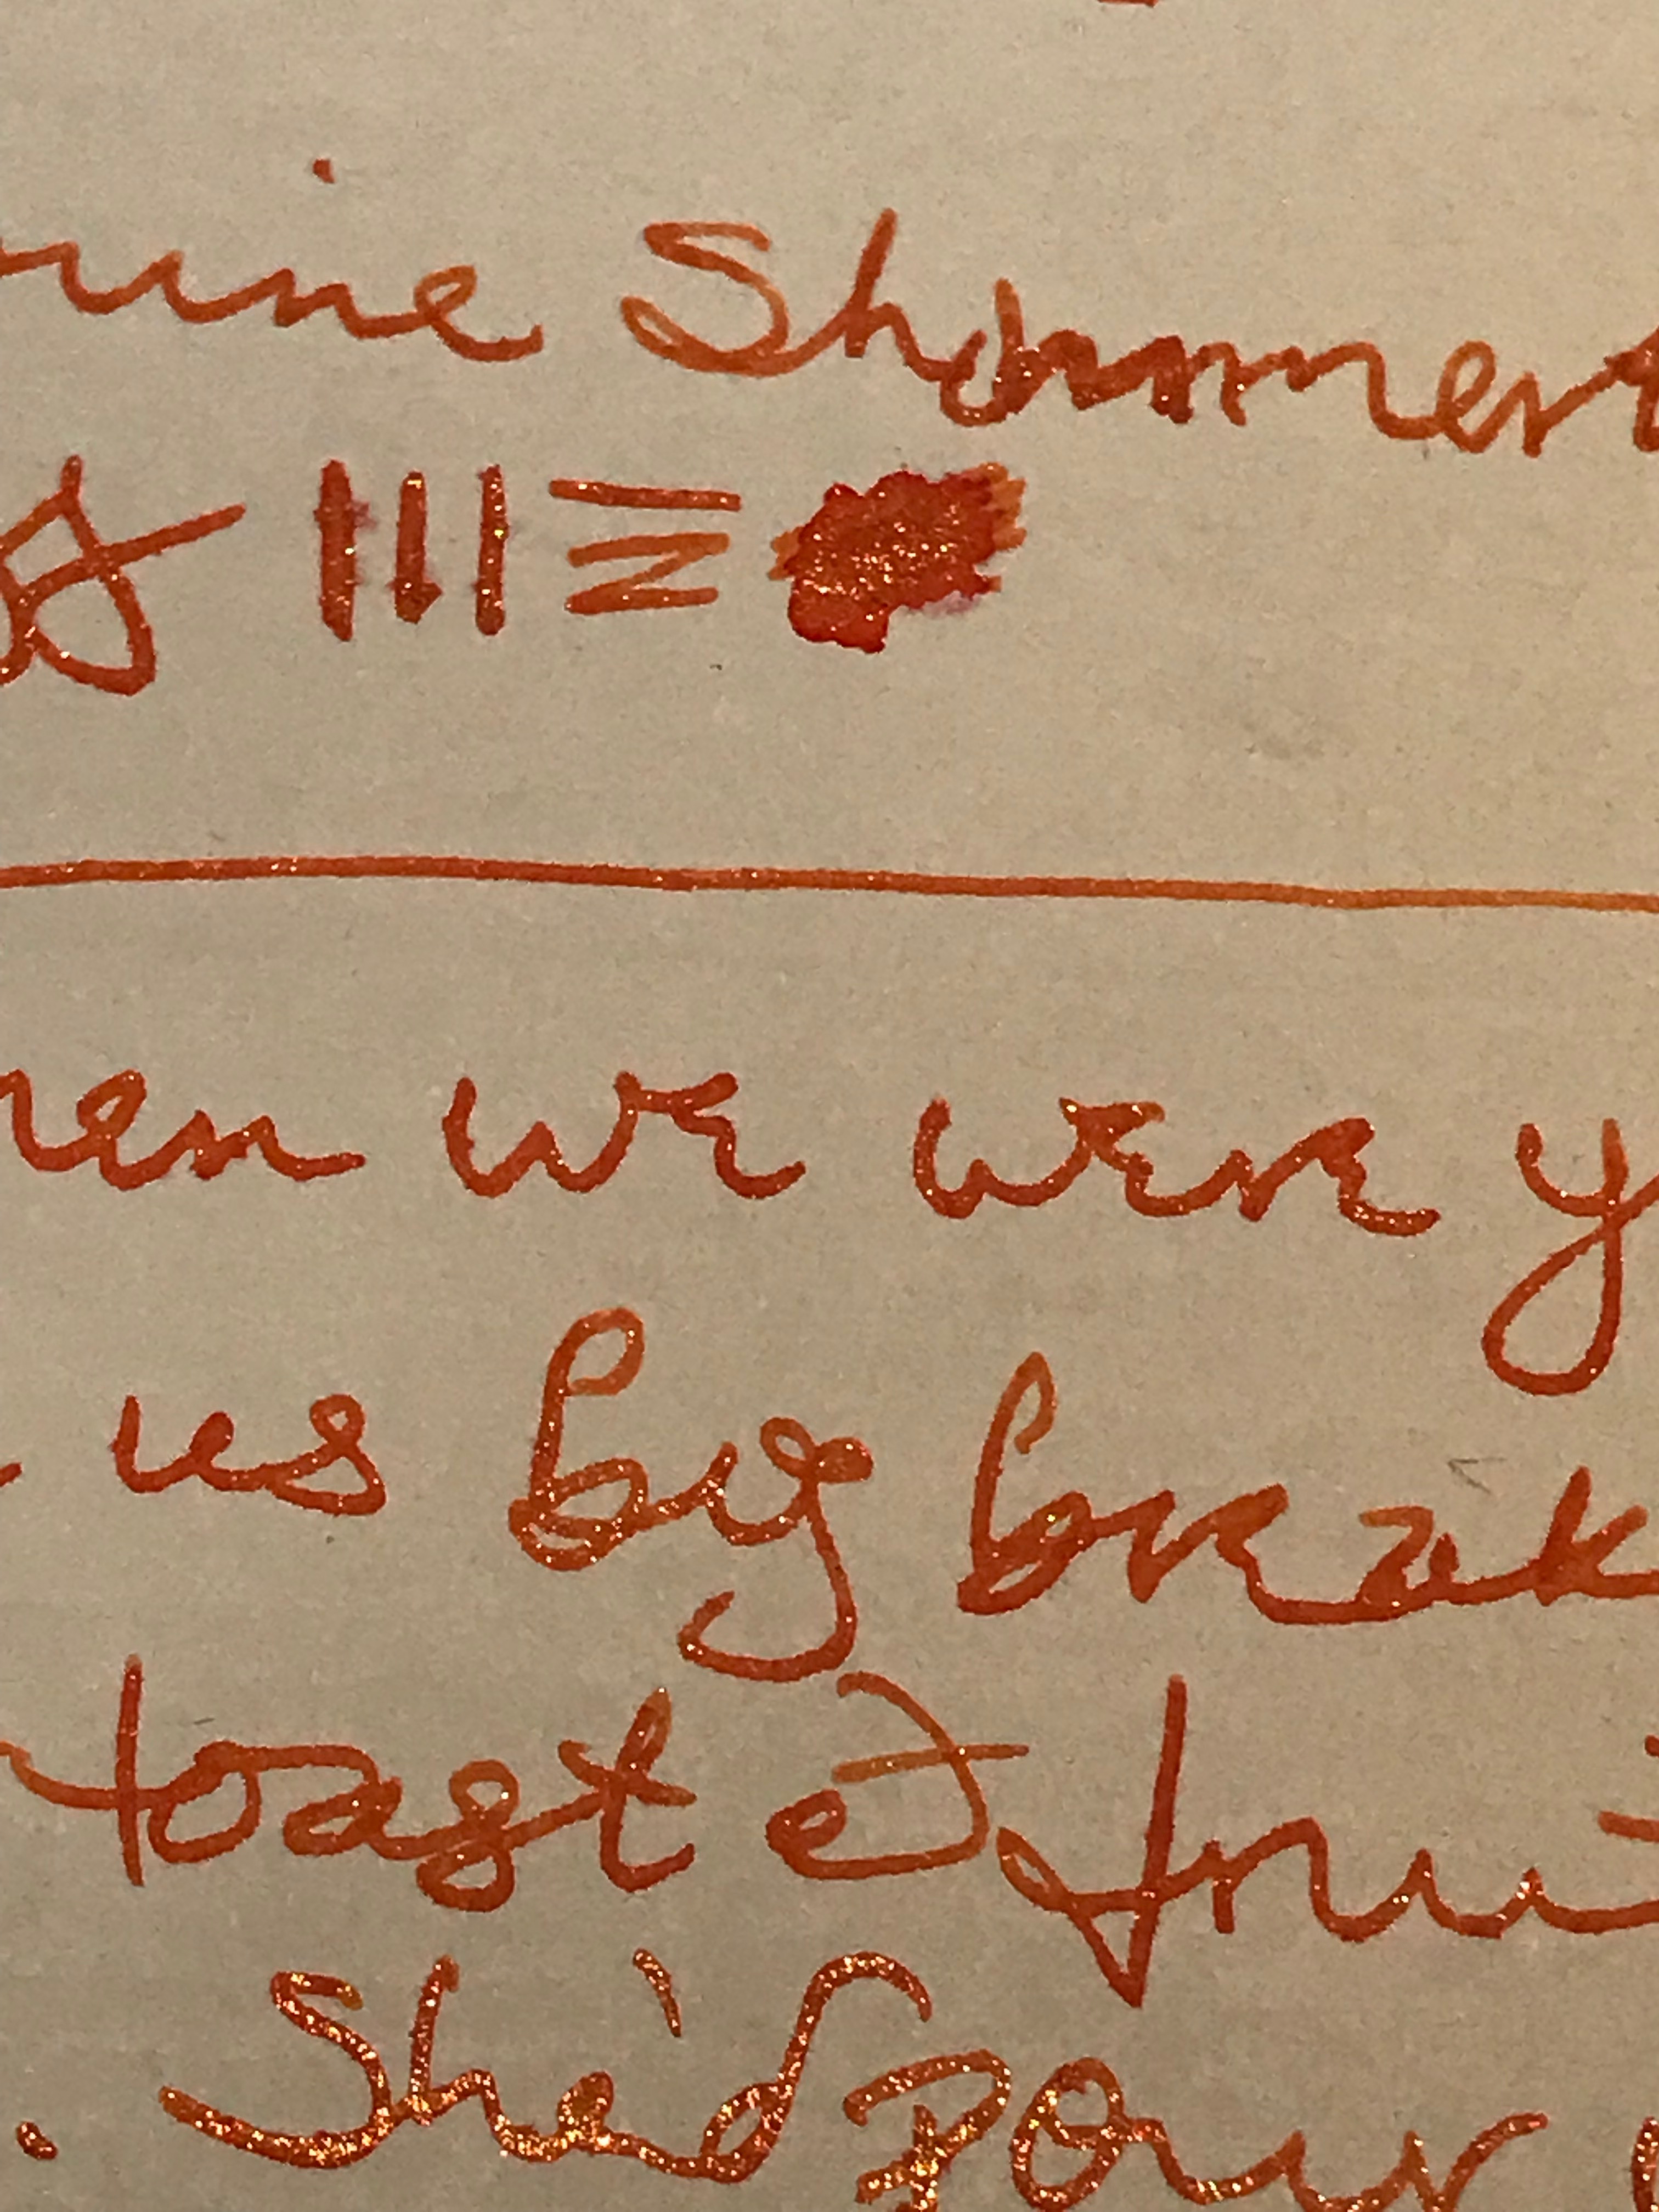 Shimmer
we were y
us big break
toast & frui
. She'd pour